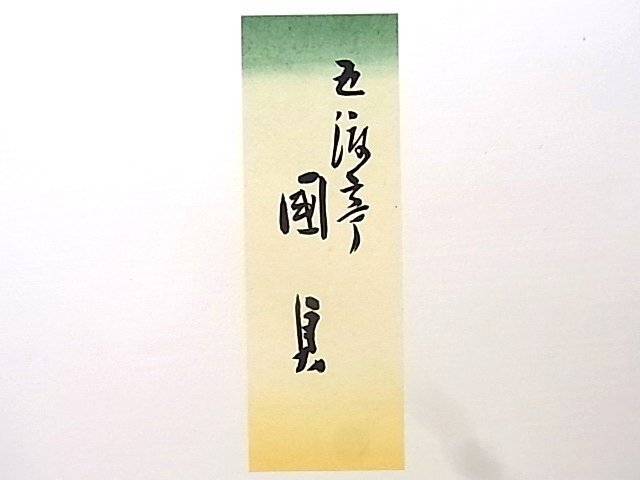 五渡亭
國貞